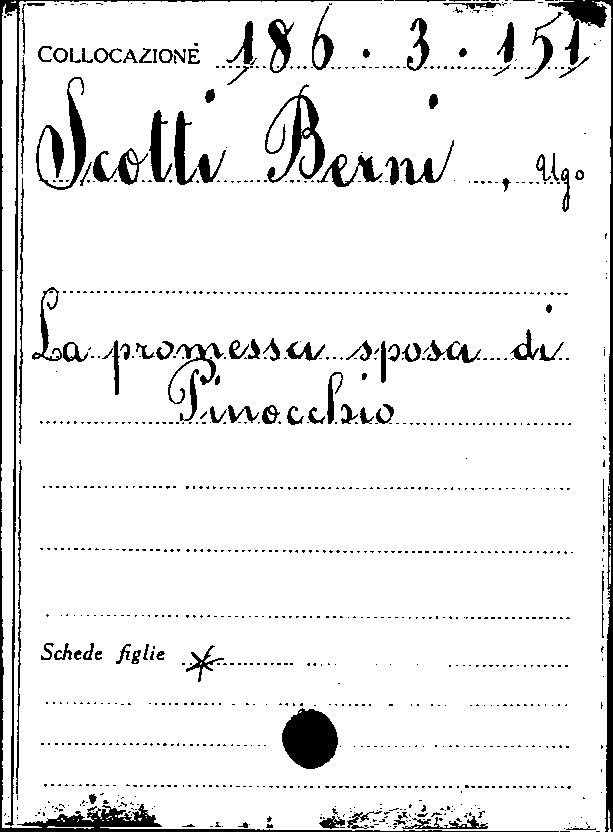 COLLOCAZIONE 186.3.151
Scotti Berni, Ugo
La promessa sposa di
Pinocchio
Schede figlie *